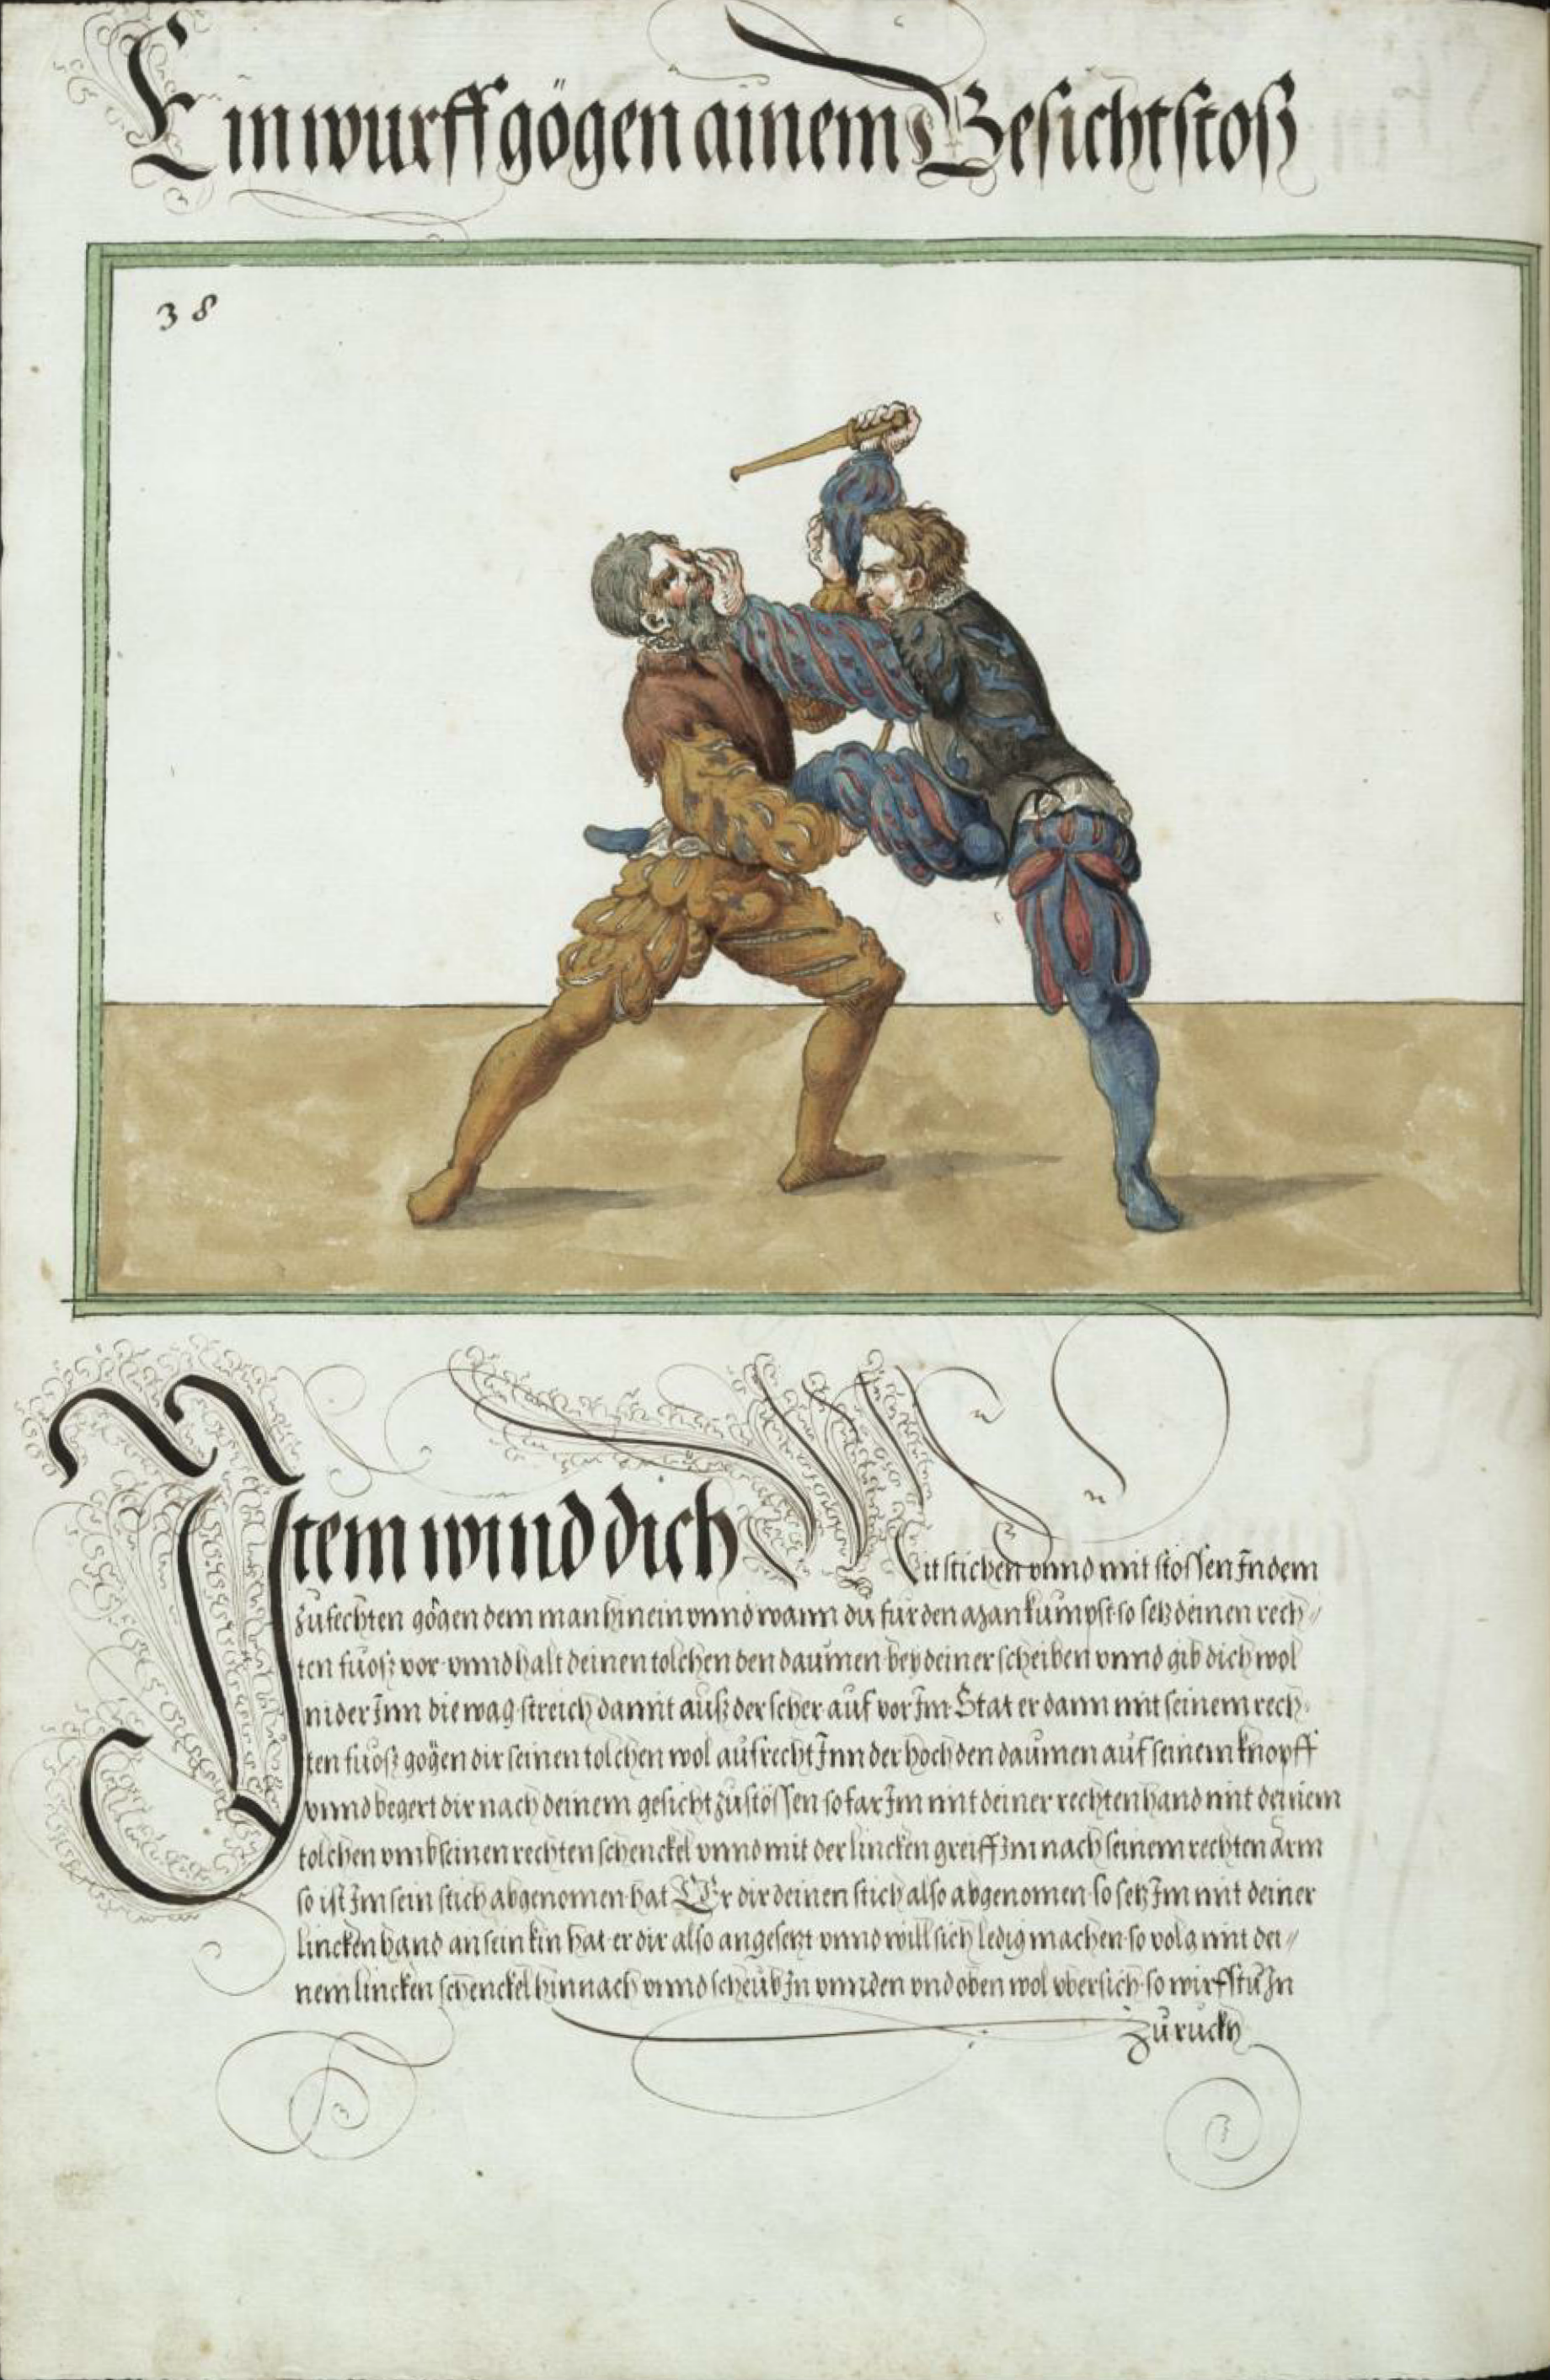 Ein wurff gögen ainem Gesichtstoß
38
Item wind dich Mit stichen vnnd mit stossen Jn dem
zůfechten gögen dem man hinein vnnd wann dů für den Man kůmpst so setz deinen rech〃
ten fůoß vor vnnd halt deinen tolchen den daumen bey deiner scheiben vnnd gib dich wol
nider Jnn die wag streich damit auß der scher auf vor Jm Stat er dann mit seinem rech〃
ten fůoß gögen dir seinen tolchen wol aufrecht Jnn der hoch den daumen auf seinem knopff
vnnd begert dir nach deinem gesicht zůstössen so far Jm mit deiner rechten hand mit deinem
tolchen vmb seinen rechten schenckel vnnd mit der lincken greiff Jm nach seinem rechten arm
so ist Jm sein stich abgenomen hat Er dir deinen stich also abgenomen so setz Jm mit deiner
lincken hand an sein kin hat er dir also angesetzt vnnd will sich ledig machen so volg mit dei〃
nem lincken schenckel hinnach vnnd scheüb Jn vnnden vnd oben wol vbersich so wirfstů Jn
Zůruckh